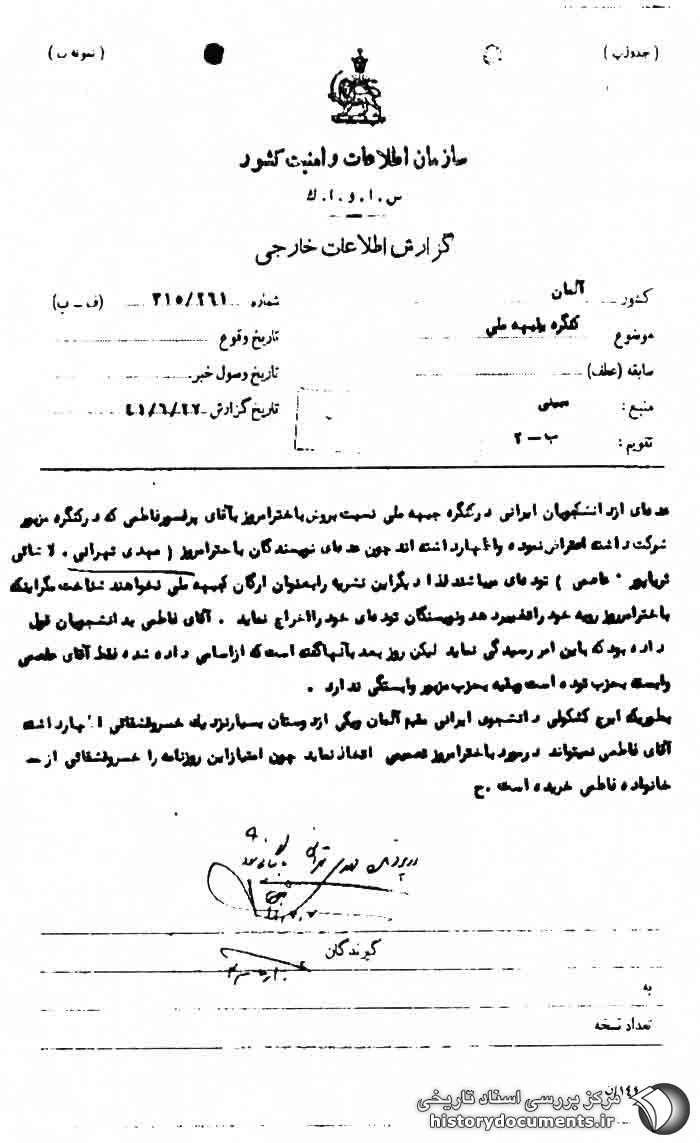 (جدول پ) (نمونه ب)
سازمان اطلاعات و امنیت کشور
س . ا . و . ا . ك
گزارش اطلاعات خارجی
کشور آلمان شماره ۳۱۵/۲۶۱ (ف – ب)
موضوع کنگره جبهه ملی تاریخ وقوع
سابقه (عطف) تاریخ وصول خبر
منبع : تاریخ گزارش ۴۱/۶/۲۷
تقویم : ب – ۲
عده‌ای از دانشجویان ایرانی در کنگره جبهه ملی نسبت بروش باخترامروز بآقای پرفسور فاطمی که در کنگره مزبور
شرکت داشته اعتراض نموده و اظهار داشته اند چون عده‌ای نویسندگان باخترامروز ( مهدی تهرانی . لاشائی
ثریاپور عاصمی ) توده‌ای میباشند لذا دیگر این نشریه را بعنوان ارگان جبهه ملی نخواهند شناخت مگر اینکه
باخترامروز رویه خود را تغییر دهد و نویسندگان توده‌ای خود را اخراج نماید . آقای فاطمی بدانشجویان قول
داده بود که باین امر رسیدگی نماید لیکن روز بعد بآنها گفته است که از اسامی داده شده فقط آقای عاصمی
وابسته بحزب توده است و بقیه بحزب مزبور وابستگی ندارد .
بطوریکه ایرج کشکولی دانشجوی ایرانی مقیم آلمان و یکی از دوستان بسیار نزدیك خسرو قشقائی اظهار داشته
آقای فاطمی نمیتواند در مورد باخترامروز تصمیمی اتخاذ نماید چون امتیاز این روزنامه را خسرو قشقائی از –
خانواده فاطمی خریده است . ح
گیرندگان
به
تعداد نسخه
مرکز بررسی اسناد تاریخی
historydocuments.ir